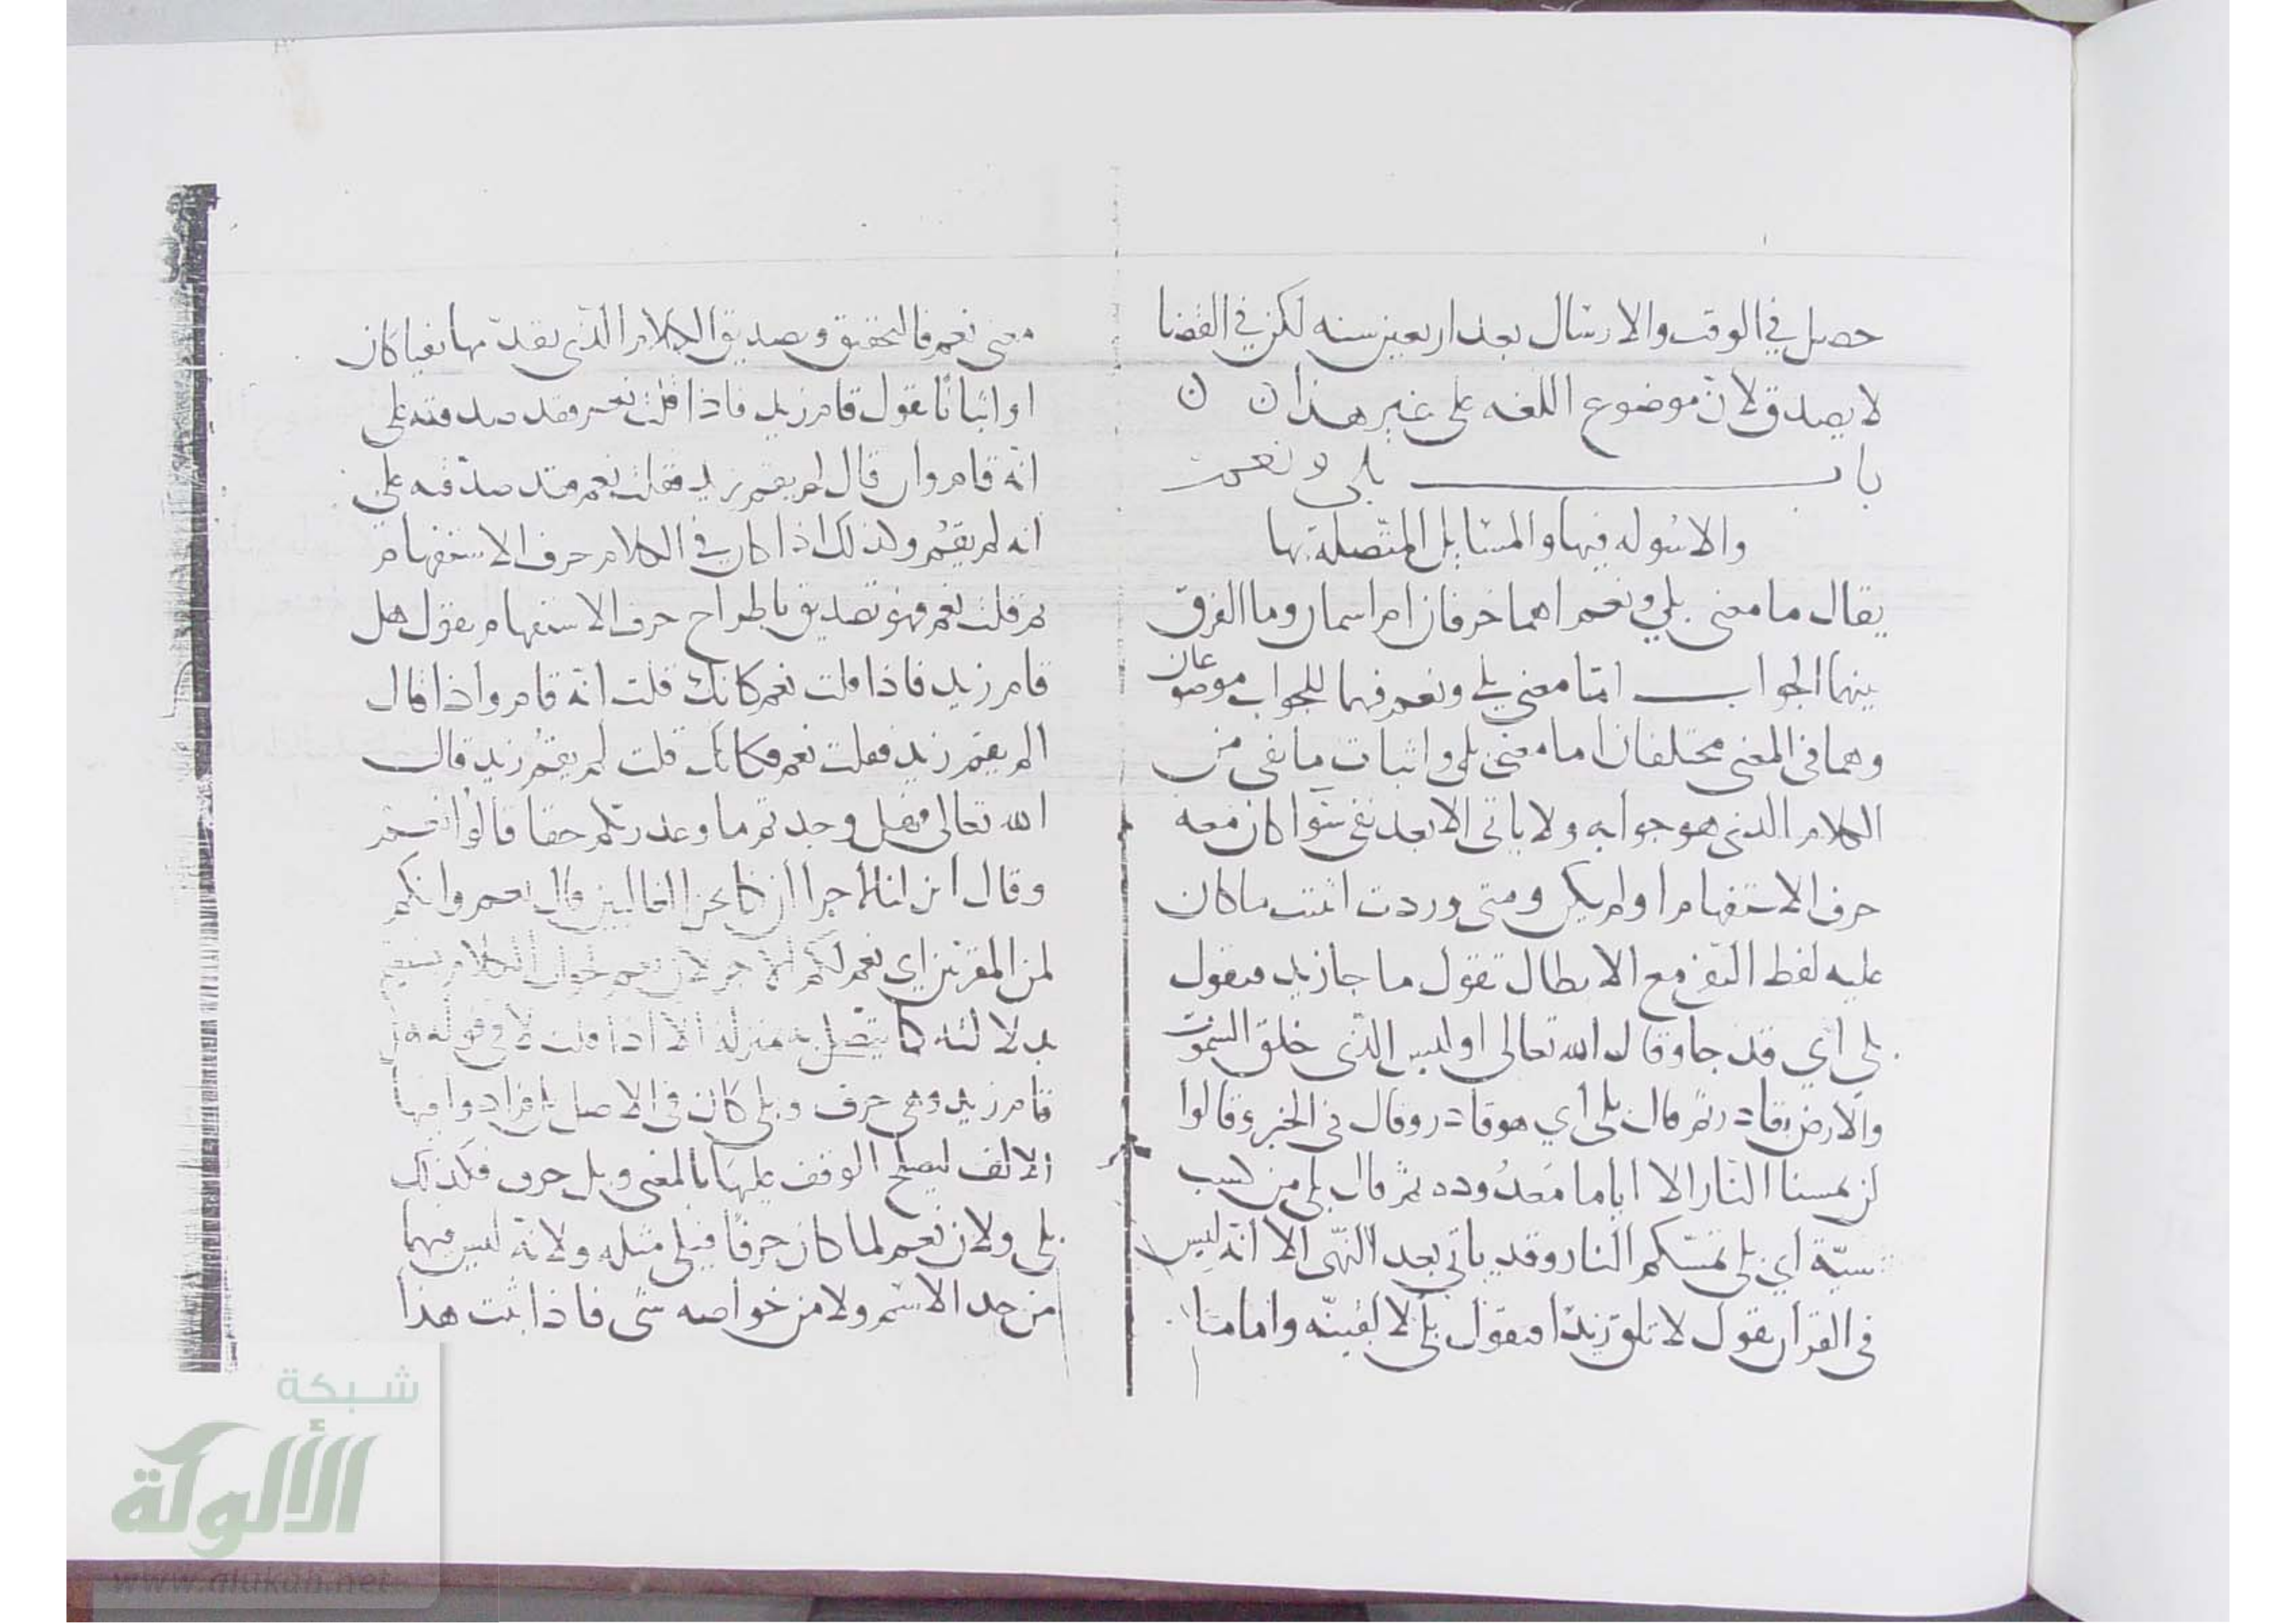 حصل في الوقت والارسال بعد اربعين سنه لكن في القضا
لا يصدق لان موضوع اللغه على غير هذا ن ن
باب بلى ونعم
والاسوله فيها والمسايل المتصلة بها
يقال ما معنى بلي ونعم اهما حرفان ام اسمان وما الفرق
بينهما الجواب امّا معنى بلي ونعم فهما للجواب موضوعان
وهما في المعنى مختلفان اما معنى بلى واثبات ما نفى من
الكلام الذي هو جوابه ولا ياتي الا بعد نفي سوا كان معه
حرف الاستفهام او لم يكن ومتى وردت اثبتت ما كان
عليه لفظ النفي مع الابطال تقول ما جا زيد فيقول
بلي اي قد جا وقال الله تعالى اوليس الذي خلق السموت
والارض بقادر ثم قال بلى اي هو قادر وقال في الخبر وقالوا
لن تمسنا النار الا اياما معدوده ثم قال بلى من كسب
سيّة اي بلى تمسّكم النار وقد ياتي بعد النهى الا انه ليس
في القران يقول لا تلق زيدًا فيقول بلى لالقينّه واما
معنى نعم فالتحقيق وتصديق الكلام الذي تقدّمها نفيا كان
او اثباتا تقول قام زيد فاذا قلت نعم فقد صدقته على
انّه قام وان قال لم يقم زيد فقلت نعم فقد صدّقته على
انه لم يقم وكذلك اذا كان في الكلام حرف الاستفهام
ثم قلت نعم فهو تصديق باطراح حرف الاستفهام تقول هل
قام زيد فاذا قلت نعم كانك قلت انّه قام واذا قال
الم يقم زيد فقلت نعم فكانك قلت لم يقم زيد قال
الله تعالى فهل وجدتم ما وعد ربكم حقا قالوا نعم
وقال ائن لنا لاجرا ان كنا نحن الغالبين قال نعم وانكم
لمن المقربين اي نعم لكم الاجر لان نعم
قام زيد وهي حرف وبلى كان في الاصل
الالف ليصلح الوقف عليها بالمعنى وبل حرف فكذلك
بلى ولان نعم لما كان حرفًا فبلى مثله ولانّه ليس فيهما
من حد الاسم ولا من خواصه شى فاذا ثبت هذا
شبكة
الألوكة
www.alukah.net